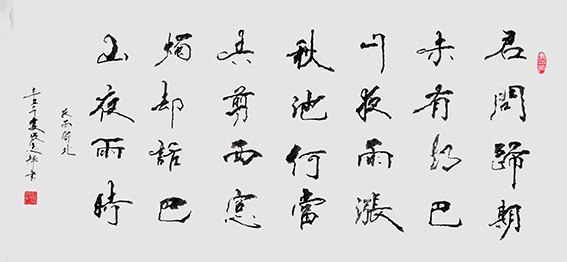 君問歸期
未有期巴
山夜雨漲
秋池何當
共剪西窗
燭却話巴
山夜雨時
夜雨寄北